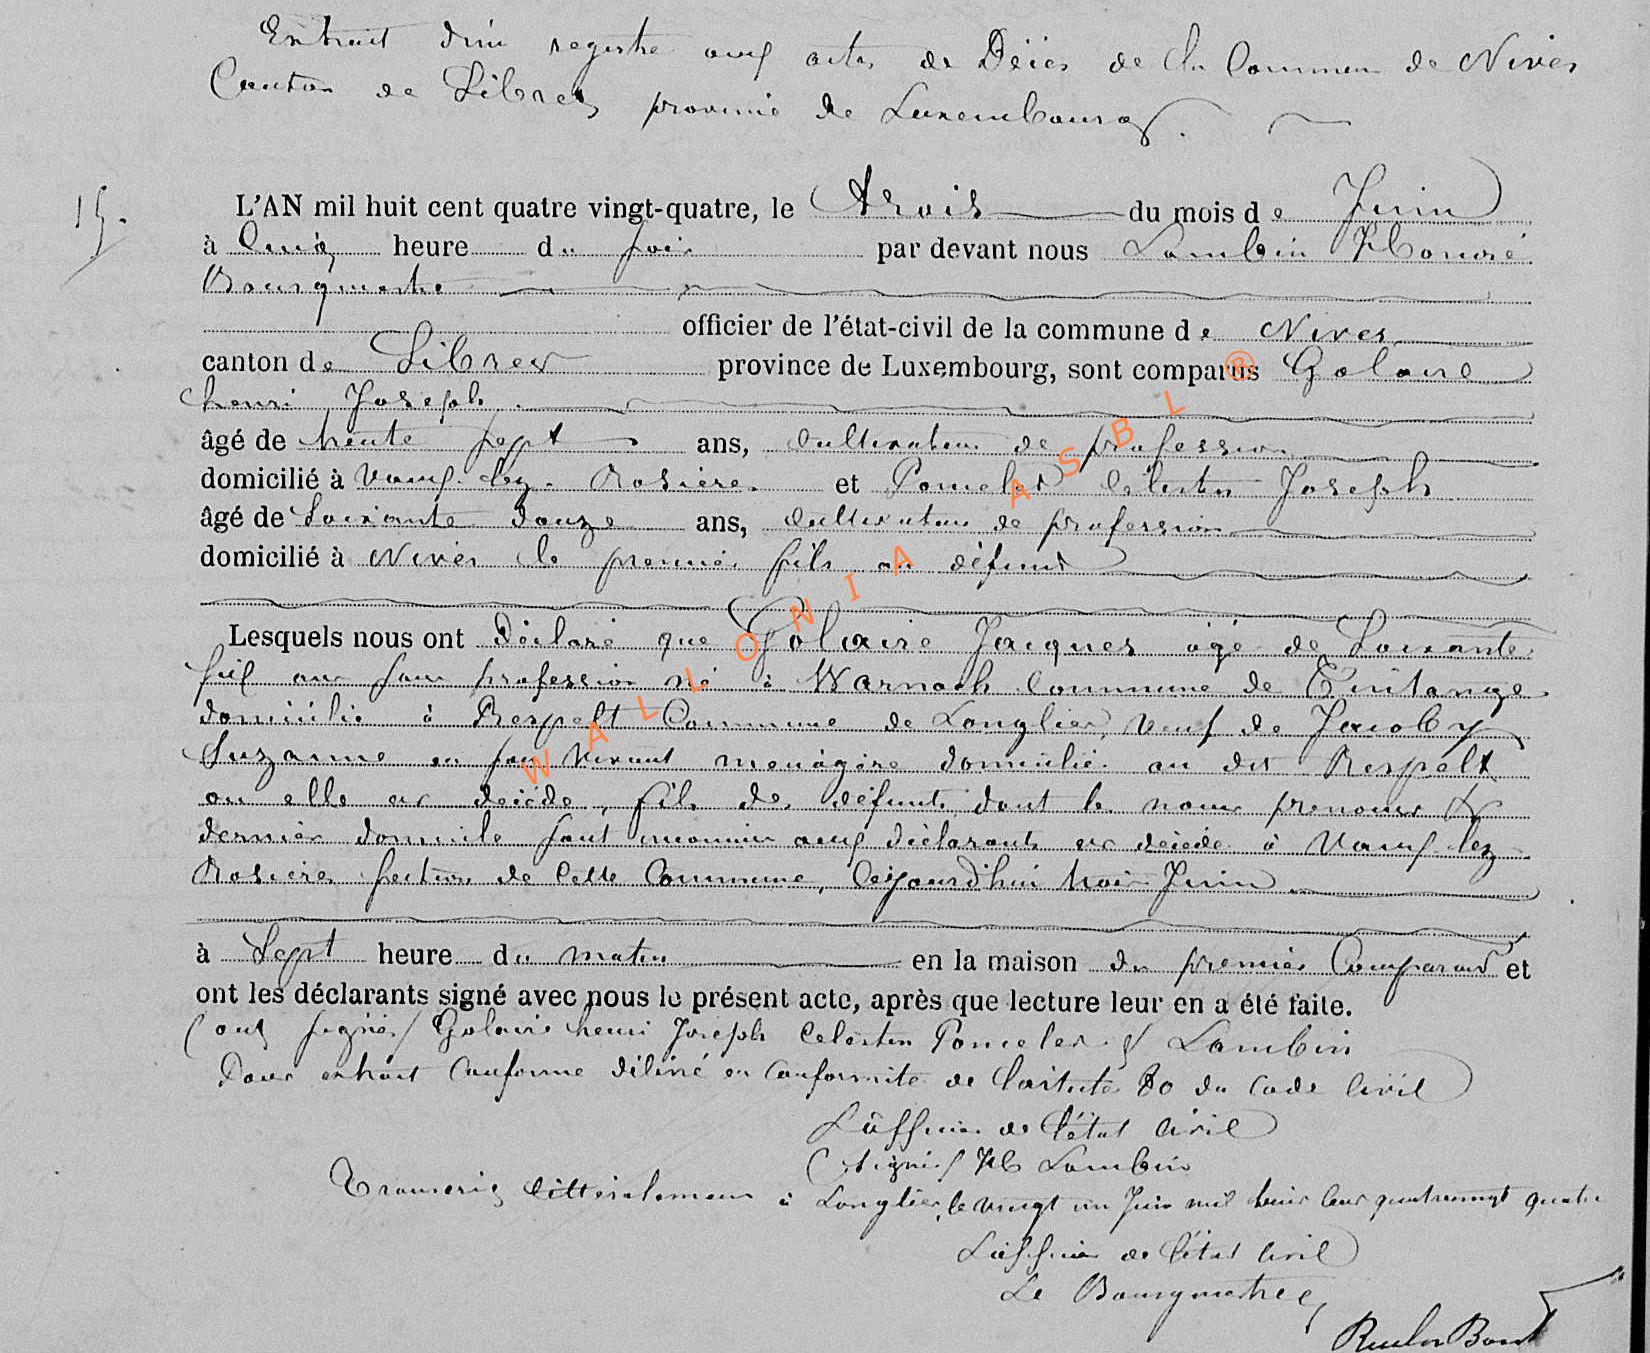 Extrait d'un registre aux actes de Décès de la Commune de Nives
Canton de Sibret, province de Luxembourg.
15.
L'AN mil huit cent quatre vingt-quatre, le trois du mois de Juin
à Cinq heure du soir par devant nous Lambin Honoré
Bourgmestre
officier de l'état-civil de la commune de Nives
canton de Sibret province de Luxembourg, sont comparus Golaire
henri Joseph
âgé de trente sept ans, Cultivateur de profession
domicilié à Vaux-lez-Rosières et Poncelet Célestin Joseph
âgé de Soixante douze ans, Cultivateur de profession
domicilié à Nives le premier fils au défunt
Lesquels nous ont Déclaré que Golaire Jacques âgé de Soixante
six ans sans profession né à Warnach Commune de Tintange
domicilié à Respelt Commune de Longlier, veuf de Jacoby
Suzanne en son vivant ménagère domicilié au dit Respelt
ou elle est décédé, fils de défunts dont les noms prenoms &
dernier domicile sont inconnu aux déclarants est décédé à Vaux lez
Rosières section de Cette Commune, Cejourd'hui trois Juin
à Sept heure du matin en la maison du premier Comparant et
ont les déclarants signé avec nous le présent acte, après que lecture leur en a été faite.
(ont signés) Golaire henri Joseph Celestin Poncelet & Lambin
Pour extrait Conforme délivré en Conformité de l'article 80 du Code Civil
L'officier de l'état Civil
(signé) H Lambin
Transcrit littéralement à Longlier, le vingt un Juin mil huit cent quatrevingt quatre
L'officier de l'état Civil
Le Bourgmestre,
WALLONIA ASBL ®